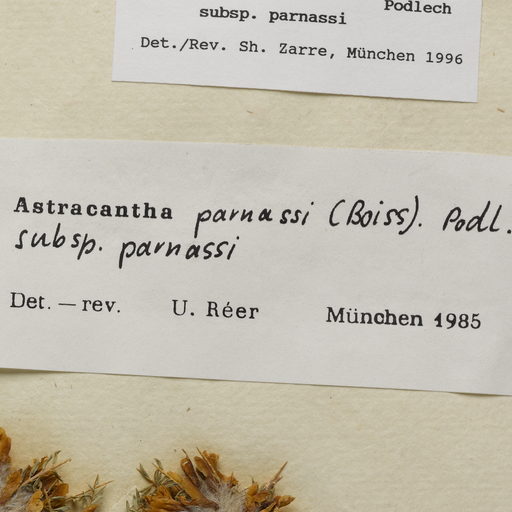 Podlech
subsp. parnassi
Det./Rev. Sh. Zarre, München 1996
Astracantha parnassi (Boiss). Podl.
subsp. parnassi
Det. — rev. U. Réer München 1985